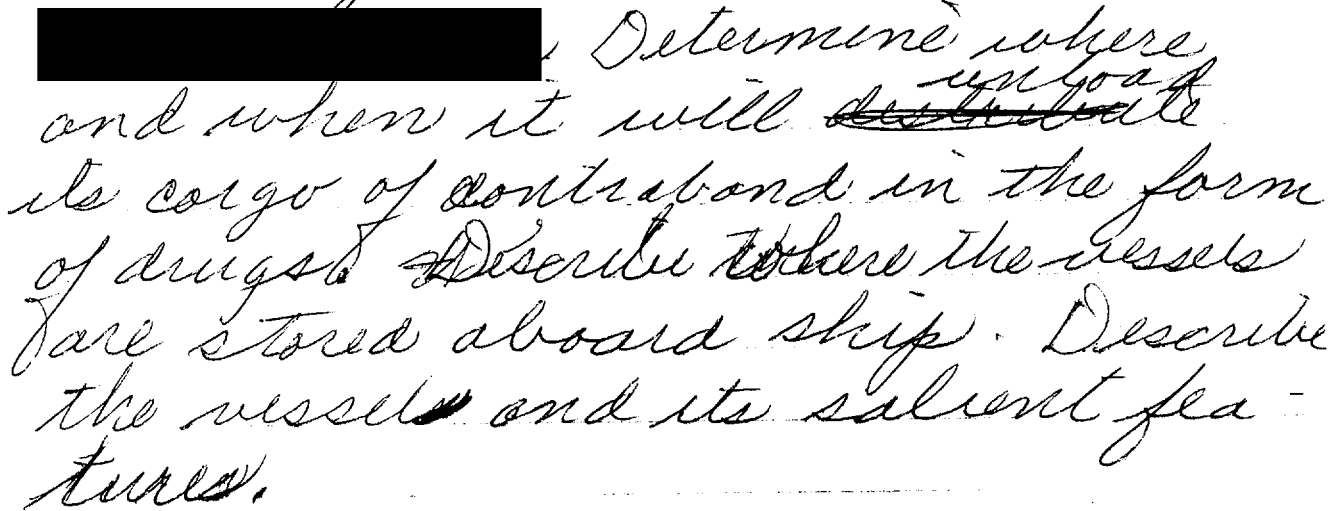 Determine where
unload
and when it will distribute
its cargo of contraband in the form
of drugs. Describe where the vessels
are stored aboard ship. Describe
the vessel and its salient fea-
tures.